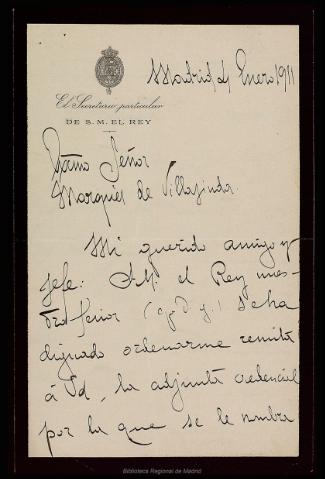 Madrid 4 Enero 1911
El Secretario particular
DE S. M. EL REY
Señor
Marqués de Villasinda.
Mi querido amigo y
jefe: S. M. el Rey nues-
tro Señor (q. D. g.) se ha
dignado ordenarme remita
á Vd, la adjunta credencial
por la que se le nombra
Biblioteca Regional de Madrid